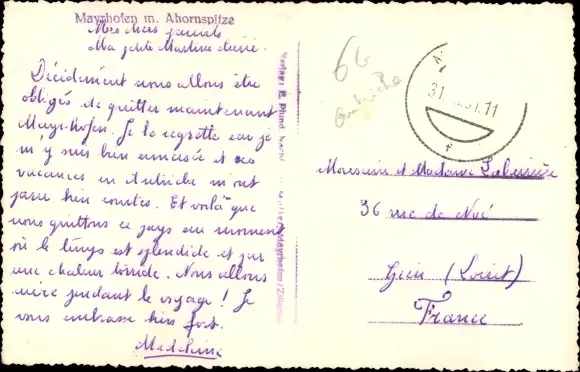 Mayrhofen m. Ahornspitze
Mes chers parents
Ma petite Martine chérie.
Décidément nous allons être
obligés de quitter maintenant
Mayr-hofen. Je le regrette car je
m'y suis bien amusée et ces
vacances en Autriche m'ont
paru bien courtes. Et voilà que
nous quittons ce pays au moment
où le temps est splendide et par
une chaleur torride. Nous allons
cuire pendant le voyage ! Je
vous embrasse bien fort.
Madeleine
66
Autriche
31
11
Monsieur et Madame
36 rue de Noé
Gien (Loiret)
France